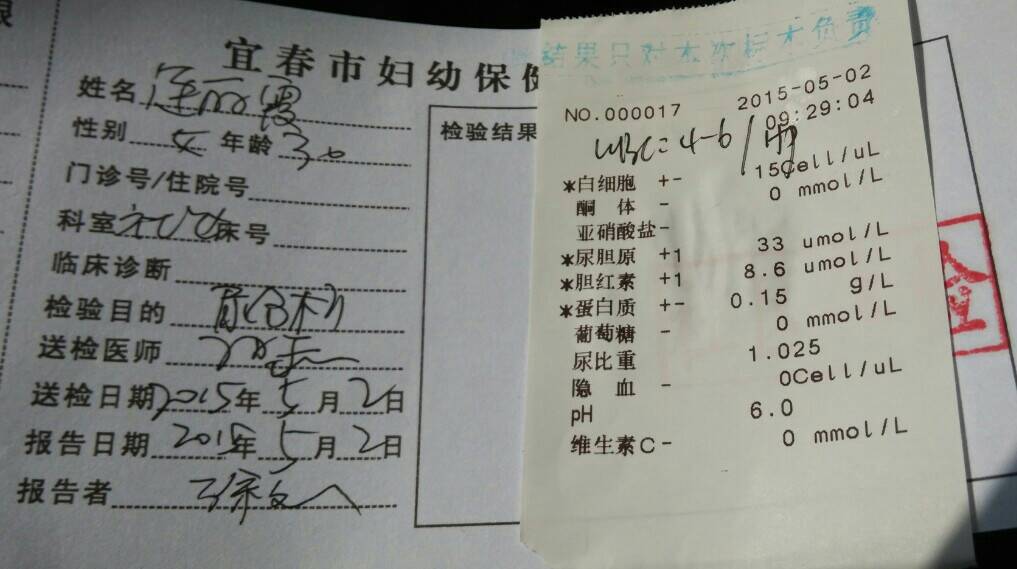 宜春市妇幼保健
姓名
性别 女 年龄 30
门诊号/住院号
科室 床号
临床诊断
检验目的
送检医师
送检日期 2015年5月2日
报告日期 2015年5月2日
报告者
检验结果
结果只对本次标本负责
NO.000017 2015-05-02
09:29:04
WBC=4-6/
*白细胞 +- 15Cell/uL
酮体 - 0 mmol/L
亚硝酸盐-
*尿胆原 +1 33 umol/L
*胆红素 +1 8.6 umol/L
*蛋白质 +- 0.15 g/L
葡萄糖 - 0 mmol/L
尿比重 1.025
隐血 - 0Cell/uL
pH 6.0
维生素C- 0 mmol/L